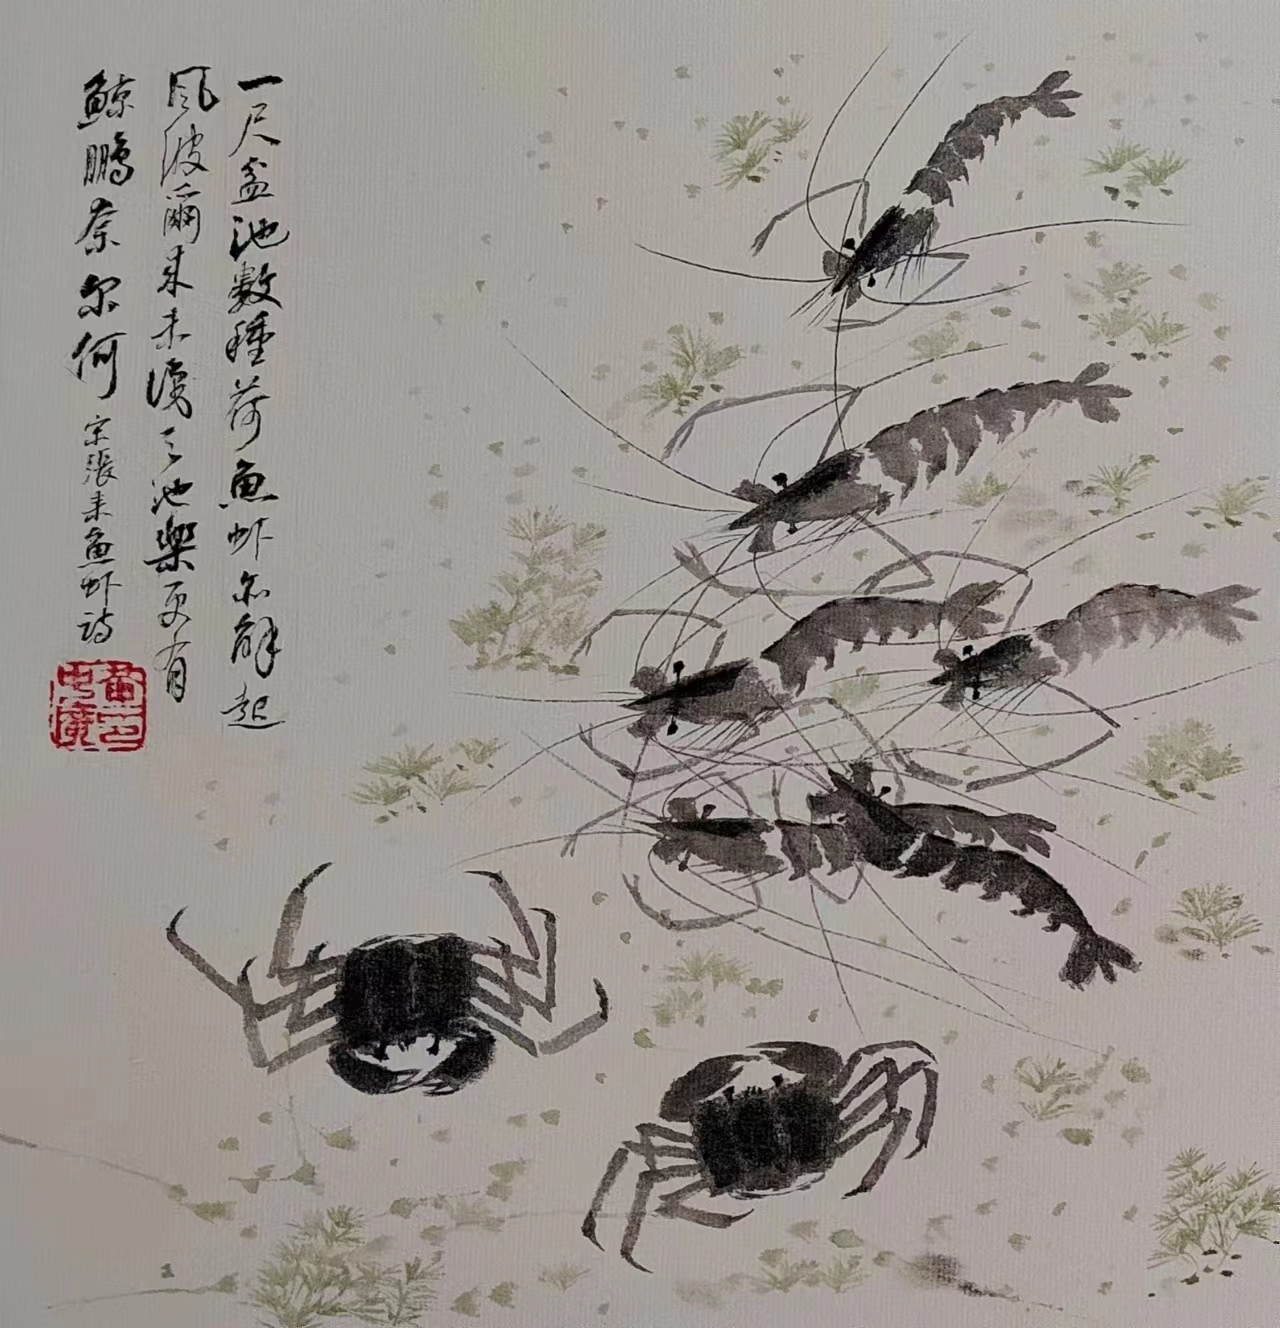 一尺盆池數種荷魚虾亦解起
風波爾来未池樂更有
鲸鵬奈尔何
宋張耒魚虾詩